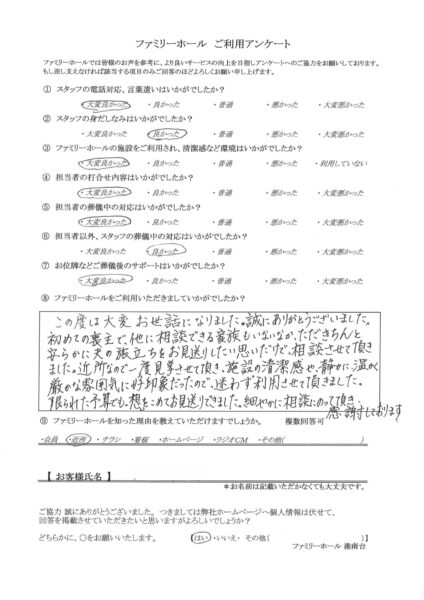 ファミリーホール　ご利用アンケート
ファミリーホールでは皆様のお声を参考に、より良いサービスの向上を目指しアンケートへのご協力をお願いしております。
もし差し支えなければ該当する項目のみご回答のほどよろしくお願い申し上げます。
① スタッフの電話対応、言葉遣いはいかがでしたか？
・大変良かった ・良かった ・普通 ・悪かった ・大変悪かった
② スタッフの身だしなみはいかがでしたか？
・大変良かった ・良かった ・普通 ・悪かった ・大変悪かった
③ ファミリーホールの施設をご利用され、清潔感など環境はいかがでしたか？
・大変良かった ・良かった ・普通 ・悪かった ・利用していない
④ 担当者の打合せ内容はいかがでしたか？
・大変良かった ・良かった ・普通 ・悪かった ・大変悪かった
⑤ 担当者の葬儀中の対応はいかがでしたか？
・大変良かった ・良かった ・普通 ・悪かった ・大変悪かった
⑥ 担当者以外、スタッフの葬儀中の対応はいかがでしたか？
・大変良かった ・良かった ・普通 ・悪かった ・大変悪かった
⑦ お位牌などご葬儀後のサポートはいかがでしたか？
・大変良かった ・良かった ・普通 ・悪かった ・大変悪かった
⑧ ファミリーホールをご利用いただきましていかがでしたか？
この度は大変お世話になりました。誠にありがとうございました。
初めての喪主で、他に相談できる家族もいないなか、ただきちんと
安らかに夫の旅立ちをお見送りしたい思いだけで、相談させて頂き
ました。近所なので一度見学させて頂き、施設の清潔感や、静かに温かく
厳かな雰囲気に好印象だったので、迷わず利用させて頂きました。
限られた予算でも、想をこめてお見送りできました。細やかに相談にのって頂き、
感謝しております
⑨ ファミリーホールを知った理由を教えていただけますでしょうか。　複数回答可
・会員 ・近所 ・チラシ ・看板 ・ホームページ ・ラジオCM ・その他(　)
【 お客様氏名 】
＊お名前は記載いただかなくても大丈夫です。
ご協力 誠にありがとうございました。つきましては弊社ホームページへ個人情報は伏せて、
回答を掲載させていただきたいと思いますがよろしいでしょうか？
どちらかに、○をお願いいたします。　【はい ・いいえ ・ その他(　)】
ファミリーホール 港南台